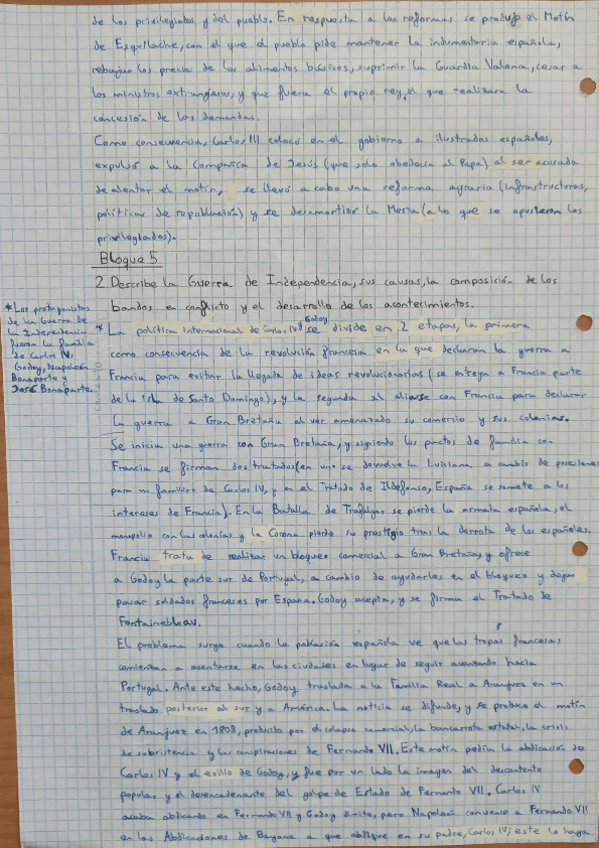 de los privilegiados y del pueblo. En respuesta a las reformas se produjo el Motín
de Esquilache, con el que el pueblo pide mantener la indumentaria española,
rebajar los precios de los alimentos básicos, suprimir la Guardia Valona, cesar a
los ministros extranjeros, y que fuera el propio rey, el que realizara la
concesión de las demandas.
Como consecuencia, Carlos III colocó en el gobierno a ilustrados españoles,
expulsó a la Compañía de Jesús (que solo obedecía al Papa) al ser acusada
de alentar el motín, se llevó a cabo una reforma agraria (infraestructuras,
políticas de repoblación) y se desamortizó la Mesta (a lo que se opusieron los
privilegiados).
Bloque 5
2. Describe la Guerra de Independencia, sus causas, la composición de los
bandos en conflicto y el desarrollo de los acontecimientos.
* Los protagonistas
de la Guerra de
la Independencia
fueron la familia
de Carlos IV,
Godoy, Napoleón
Bonaparte y
José Bonaparte.
* La política internacional de Carlos IV y Godoy se divide en 2 etapas, la primera
como consecuencia de la revolución francesa en la que declaran la guerra a
Francia para evitar la llegada de ideas revolucionarias (se entrega a Francia parte
de la isla de Santo Domingo), y la segunda al aliarse con Francia para declarar
la guerra a Gran Bretaña al ver amenazado su comercio y sus colonias.
Se inicia una guerra con Gran Bretaña, y siguiendo los pactos de familia con
Francia se firman dos tratados (en uno se devuelve la Luisiana a cambio de posesiones
para un familiar de Carlos IV, y en el Tratado de Ildefonso, España se somete a los
intereses de Francia). En la Batalla de Trafalgar se pierde la armada española, el
monopolio con las colonias y la Corona pierde su prestigio tras la derrota de los españoles.
Francia trata de realizar un bloqueo comercial a Gran Bretaña y ofrece
a Godoy la parte sur de Portugal, a cambio de ayudarles en el bloqueo y dejar
pasar soldados franceses por España. Godoy acepta, y se firma el Tratado de
Fontainebleau.
El problema surge cuando la población española ve que las tropas francesas
comienzan a asentarse en las ciudades en lugar de seguir avanzando hacia
Portugal. Ante este hecho, Godoy traslada a la Familia Real a Aranjuez en un
traslado posterior al sur y a América. La noticia se difunde, y se produce el motín
de Aranjuez en 1808, producido por el colapso comercial, la bancarrota estatal, la crisis
de subsistencia y las conspiraciones de Fernando VII. Este motín pedía la abdicación de
Carlos IV y el exilio de Godoy, y fue por un lado la imagen del descontento
popular y el desencadenante del golpe de Estado de Fernando VII. Carlos IV
acaba abdicando en Fernando VII y Godoy dimite, pero Napoleón convence a Fernando VII
en las Abdicaciones de Bayona a que abdique en su padre, Carlos IV; este lo haga